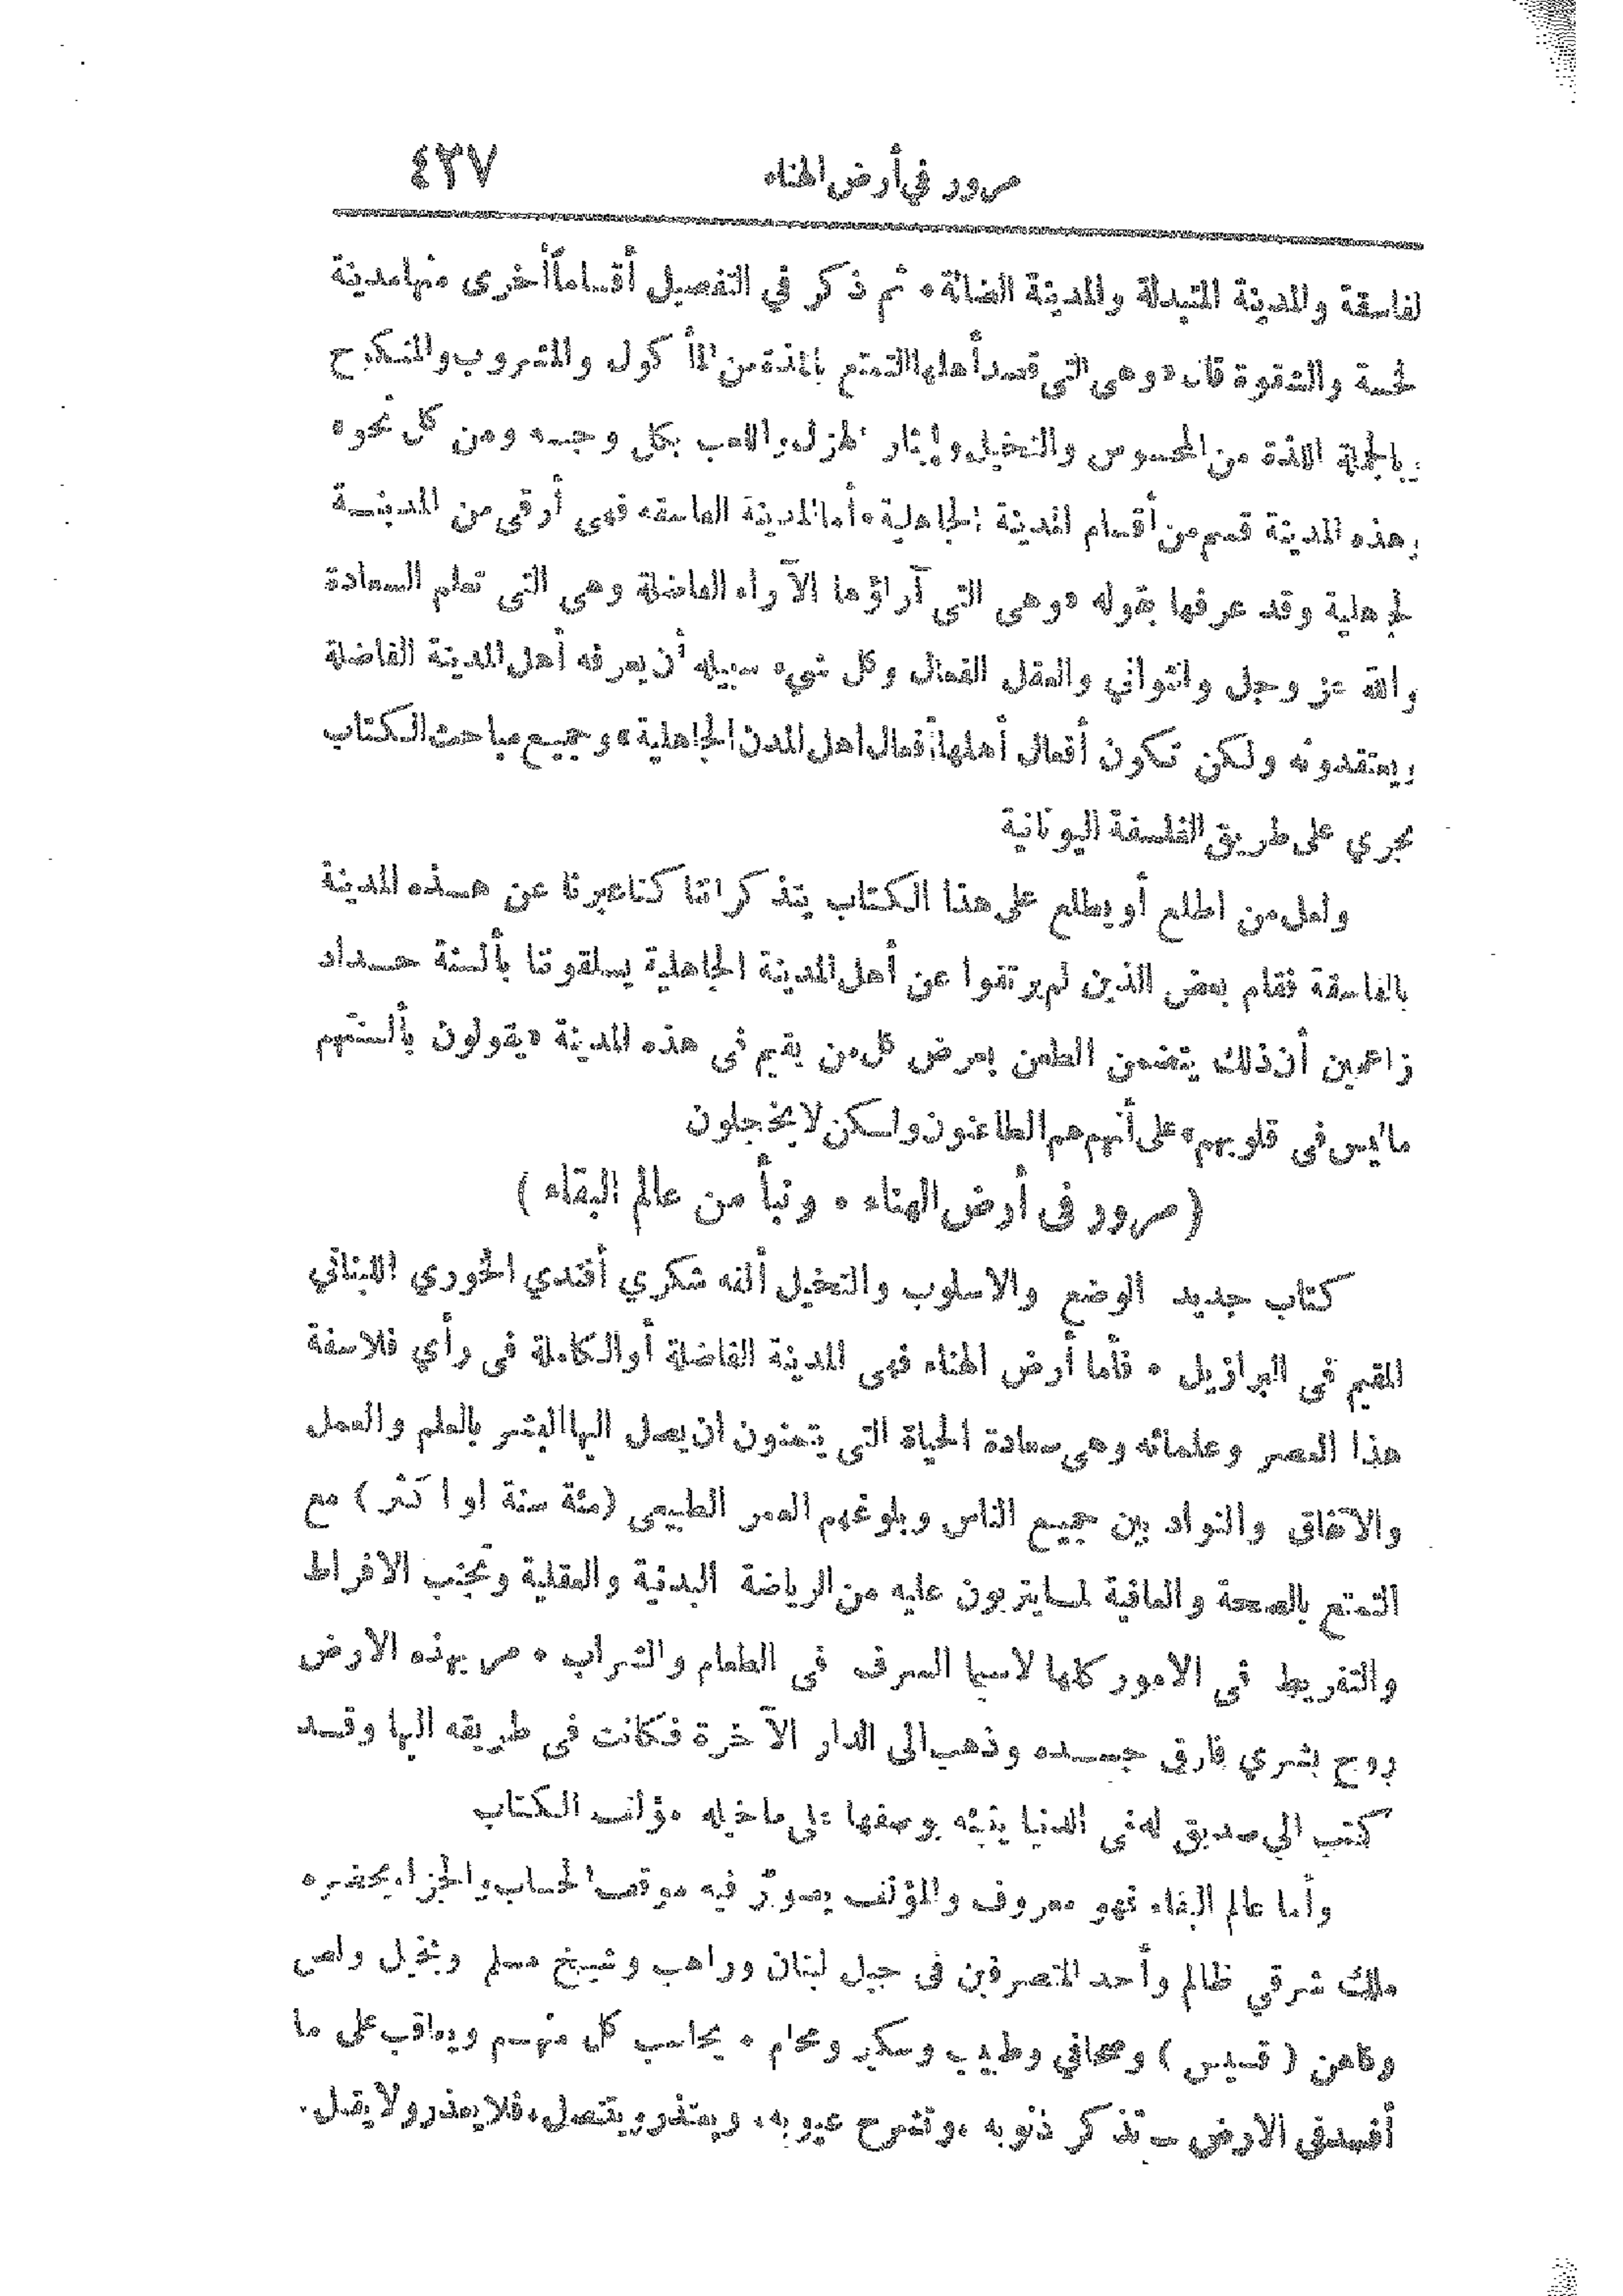 مرور في أرض الهناء ٤٣٧
لفاسقة والمدينة المتبدلة والمدينة الضالة ٠ ثم ذكر في التفصيل أقساماً أخرى منها مدينة
لخسة والشقوة قال «وهي التي قصد أهلها التمتع باللذة من المأكول والمشروب والمنكوح
بالجملة اللذة من المحسوس والتخيل وإيثار الهزل واللعب بكل وجه ومن كل نحو»
وهذه المدينة قسم من أقسام المدينة الجاهلية ٠ أما المدينة الفاسقة فهي أرقى من المدينة
لجاهلية وقد عرفها بقوله «وهى التي آراؤها الآراء الفاضلة وهى التي تعلم السعادة
والله عز وجل والثواني والعقل الفعال وكل شيء سبيله أن يعرفه أهل المدينة الفاضلة
ويعتقدونه ولكن تكون أفعال أهلها أفعال اهل المدن الجاهلية» وجميع مباحث الكتاب
تجري على طريق الفلسفة اليونانية
ولعل من اطلع أو يطلع على هذا الكتاب يتذكر اننا كنا عبرنا عن هذه المدينة
بالفاسقة فقام بعض الذين لم يرتقوا عن أهل المدينة الجاهلية يسلقوننا بألسنة حداد
زاعمين أن ذلك يتضمن الطعن بعرض كل من يقيم في هذه المدينة «يقولون بألسنتهم
ما ليس في قلوبهم» على أنهم هم الطاعنون ولكن لا يخجلون
(مرور في أرض الهناء ٠ ونبأ من عالم البقاء)
كتاب جديد الوضع والاسلوب والتخيل ألفه شكري أفندي الخوري اللبناني
المقيم في البرازيل ٠ فأما أرض الهناء فهي المدينة الفاضلة أو الكاملة في رأي فلاسفة
هذا العصر وعلمائه وهي سعادة الحياة التي يتمنون ان يصل اليها البشر بالعلم والعمل
والاتفاق والتواد بين جميع الناس وبلوغهم العمر الطبيعي (مئة سنة او اكثر) مع
التمتع بالصحة والعافية لما يتربون عليه من الرياضة البدنية والعقلية وتجنب الافراط
والتفريط في الامور كلها لاسيما السرف في الطعام والشراب ٠ مر بهذه الارض
روح بشري فارق جسده وذهب الى الدار الآخرة فكانت في طريقه اليها وقد
كتب الى صديق له في الدنيا ينبئه بوصفها على ما خيله مؤلف الكتاب
وأما عالم البقاء فهو معروف والمؤلف يصوّر فيه موقف الحساب والجزاء يحضره
ملك شرقي ظالم وأحد المتصرفين في جبل لبنان وراهب وشيخ مسلم وبخيل ولص
وكاهن (قسيس) وصحافي وطبيب وسكير ومحام ٠ يحاسب كل منهم ويعاقب على ما
أفسد في الارض ــ تذكر ذنوبه ، وتشرح عيوبه ، ويعتذر ويتنصل ، فلا يعذر ولا يقبل .